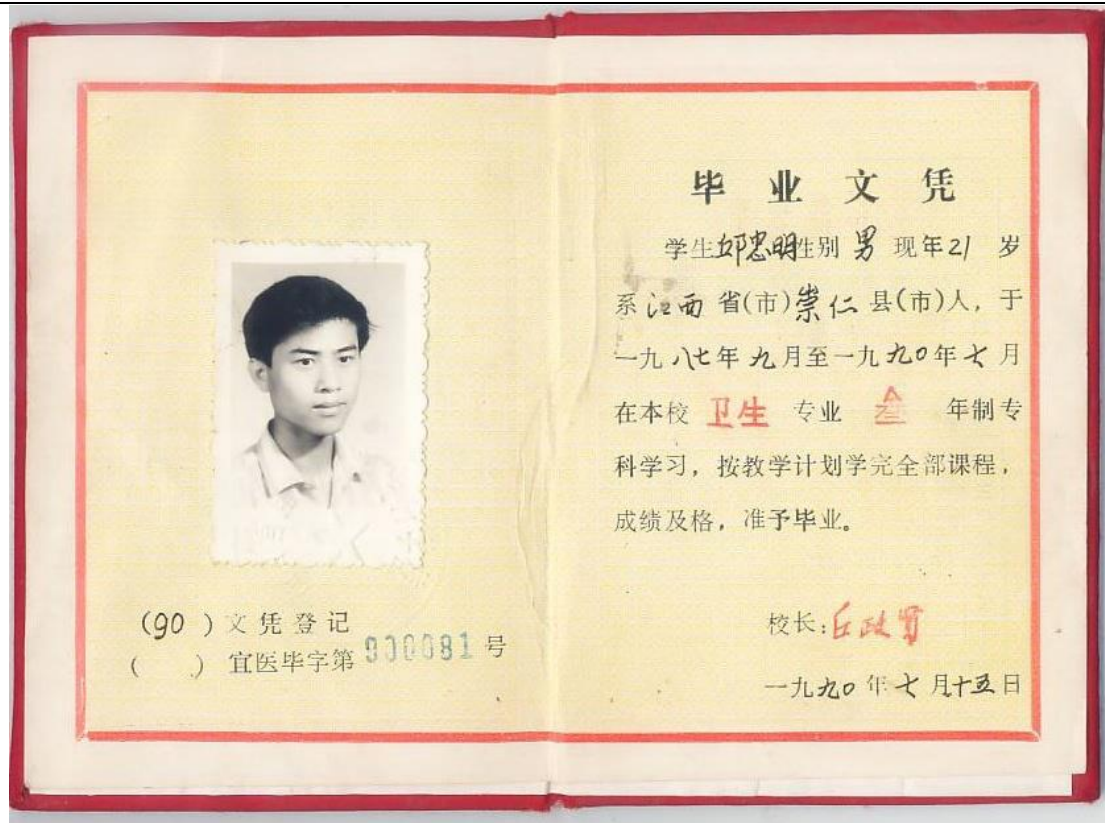 (90 ) 文凭登记
(    ) 宜医毕字第 900081 号
毕业文凭
学生邱忠明性别 男 现年21 岁
系江西省(市)崇仁县(市)人，于
一九八七年九月至一九九〇年七月
在本校 卫生 专业 叁 年制专
科学习，按教学计划学完全部课程，
成绩及格，准予毕业。
校长：丘政贤
一九九〇年七月十五日